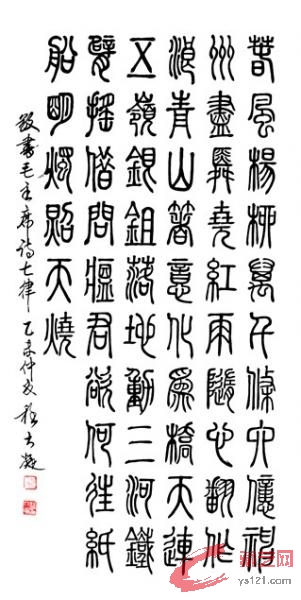 春風楊柳萬千條六億神
州盡舜堯紅雨隨心翻作
浪青山箸意化為橋天連
五嶺銀鉏落地動三河鐵
臂搖借問瘟君欲何往紙
船明燭照天燒
敬書毛主席詩七律 乙未仲
ys121.com